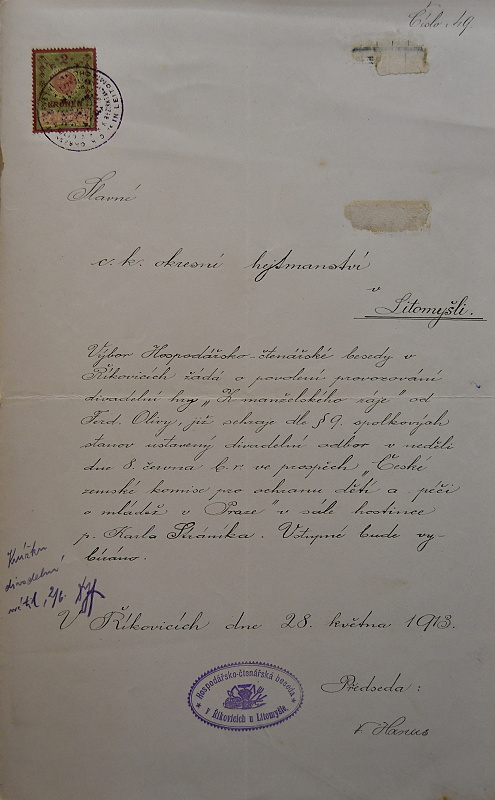 Číslo: 49.
2
KRONEN
LEITOMISCHL
Slavné
c. k. okresné hejtmanství
v
Litomyšli.
Výbor Hospodářsko-čtenářské besedy v
Říkovicích žádá o povolení provozování
divadelní hry „K manželského ráje" od
Ferd. Olivy, již sehraje dle § 9. spolkových
stanov ústavený divadelní odbor v neděli
dne 8. června t. r. ve prospěch „České
zemské komise pro ochranu dětí a péči
o mládež v Praze" v sále hostince
p. Karla Stráníka. Vstupné bude vy-
bíráno.
Knížku
divadelní
vrátil, 2/6.
V Říkovicích dne 28. května 1913.
Hospodářsko-čtenářská beseda
v Říkovicích u Litomyšle.
Předseda:
F. Hanus